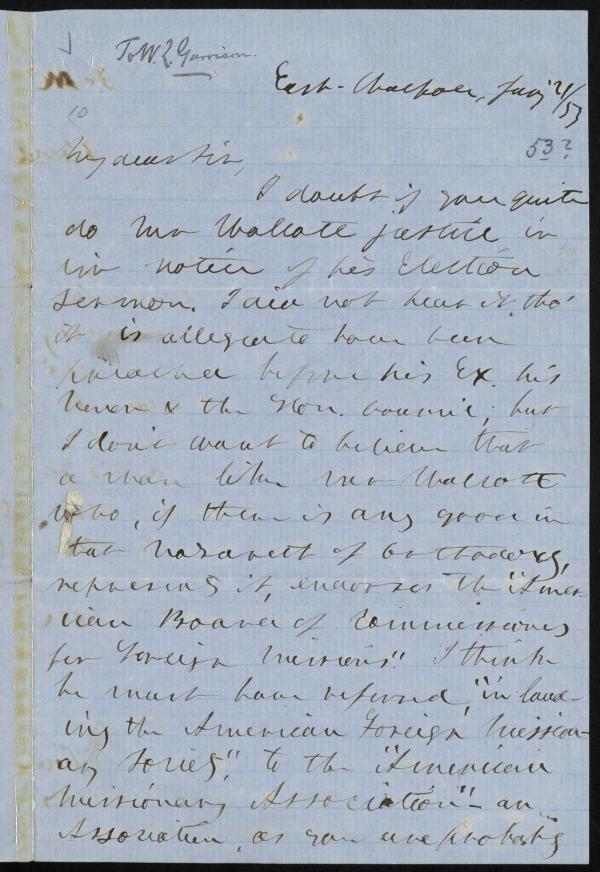 To W. L. Garrison.
East-Walpole, Jany 21/53
10
53?
My dear Sir,
I doubt if you quite
do Mr Walcott justice in
notice of his Election
Sermon. I did not hear it, tho'
it is alleged to have been
preached before his Ex. his
Honor & the Hon. Council; but
I don't want to believe that
a man like Mr Walcott
who, if there is any good in
that Nazareth of orthodoxy,
represents it, endorses the "Amer-
ican Board of Commissioners
for Foreign Missions". I think
he must have referred, "in laud-
ing the American Foreign Mission-
ary Society", to the "American
Missionary Association" - an
Association, as you are probably